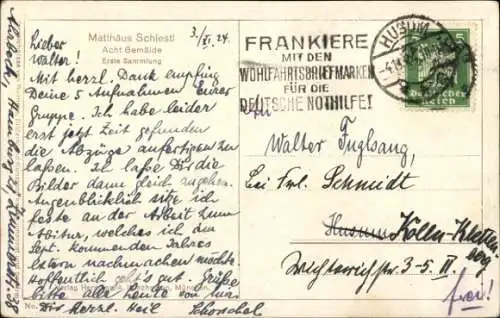 Matthäus Schiestl
Acht Gemälde
Erste Sammlung
3./XI. 24.
Lieber
Walter!
Mit herzl. Dank empfing
Deine 5 Aufnahmen Eurer
Gruppe. Ich habe leider
erst jetzt Zeit gefunden
die Abzüge anfertigen zu
laßen. Ich laße Dir die
Bilder dann gleich zugehen.
Augenblicklich sitze ich
feste an der Arbeit zum
Abitur, welches ich im
kommenden Jahres
Ostern nachmachen möchte
Hoffentlich geht's gut. Grüße
bitte alle heute von
Dir herzl. Heil
Hamburg
38
Verlag München
No.
FRANKIERE
MIT DEN
WOHLFAHRTSBRIEFMARKEN
FÜR DIE
DEUTSCHE NOTHILFE!
HUSUM
5
Deutsches
Reich
Walter Fuglsang,
bei Frl. Schmidt
Husum
Kölln-
3-5. II.
frei!